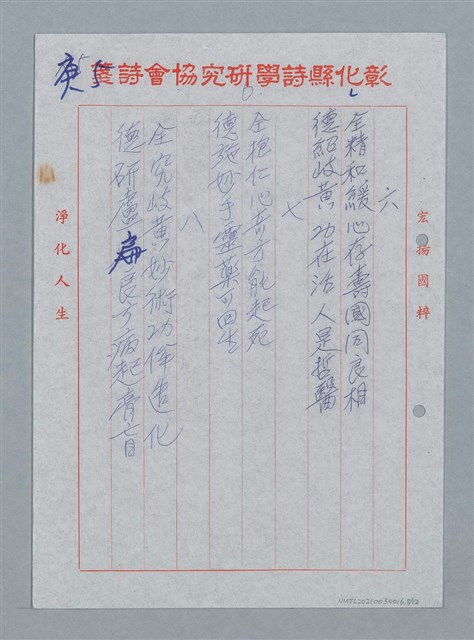 彰化縣詩學研究協會詩箋
宏揚國粹
六
全精和緩心存壽國同良相
德紹岐黃功在活人是哲醫
七
全抱仁心奇方能起死
德施妙手靈藥可回生
八
全究岐黃妙術功侔造化
德研盧扁良方病起膏肓
淨化人生